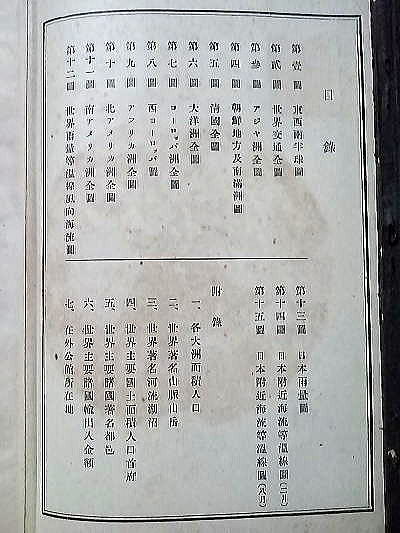 目錄
第壹圖 東西兩半球圖
第貳圖 世界交通全圖
第參圖 アジヤ洲全圖
第四圖 朝鮮地方及南滿洲圖
第五圖 清國全圖
第六圖 大洋洲全圖
第七圖 ヨーロッパ洲全圖
第八圖 西ヨーロッパ圖
第九圖 アフリカ洲全圖
第十圖 北アメリカ洲全圖
第十一圖 南アメリカ洲全圖
第十二圖 世界雨量等溫線風向海流圖
第十三圖 日本雨量圖
第十四圖 日本附近海流等溫線圖(二月)
第十五圖 日本附近海流等溫線圖(八月)
附錄
一、各大洲面積人口
二、世界著名山脈山岳
三、世界著名河流湖沼
四、世界主要諸國土面積人口首府
五、世界主要諸國著名都邑
六、世界主要諸國輸出入金額
七、在外公館所在地